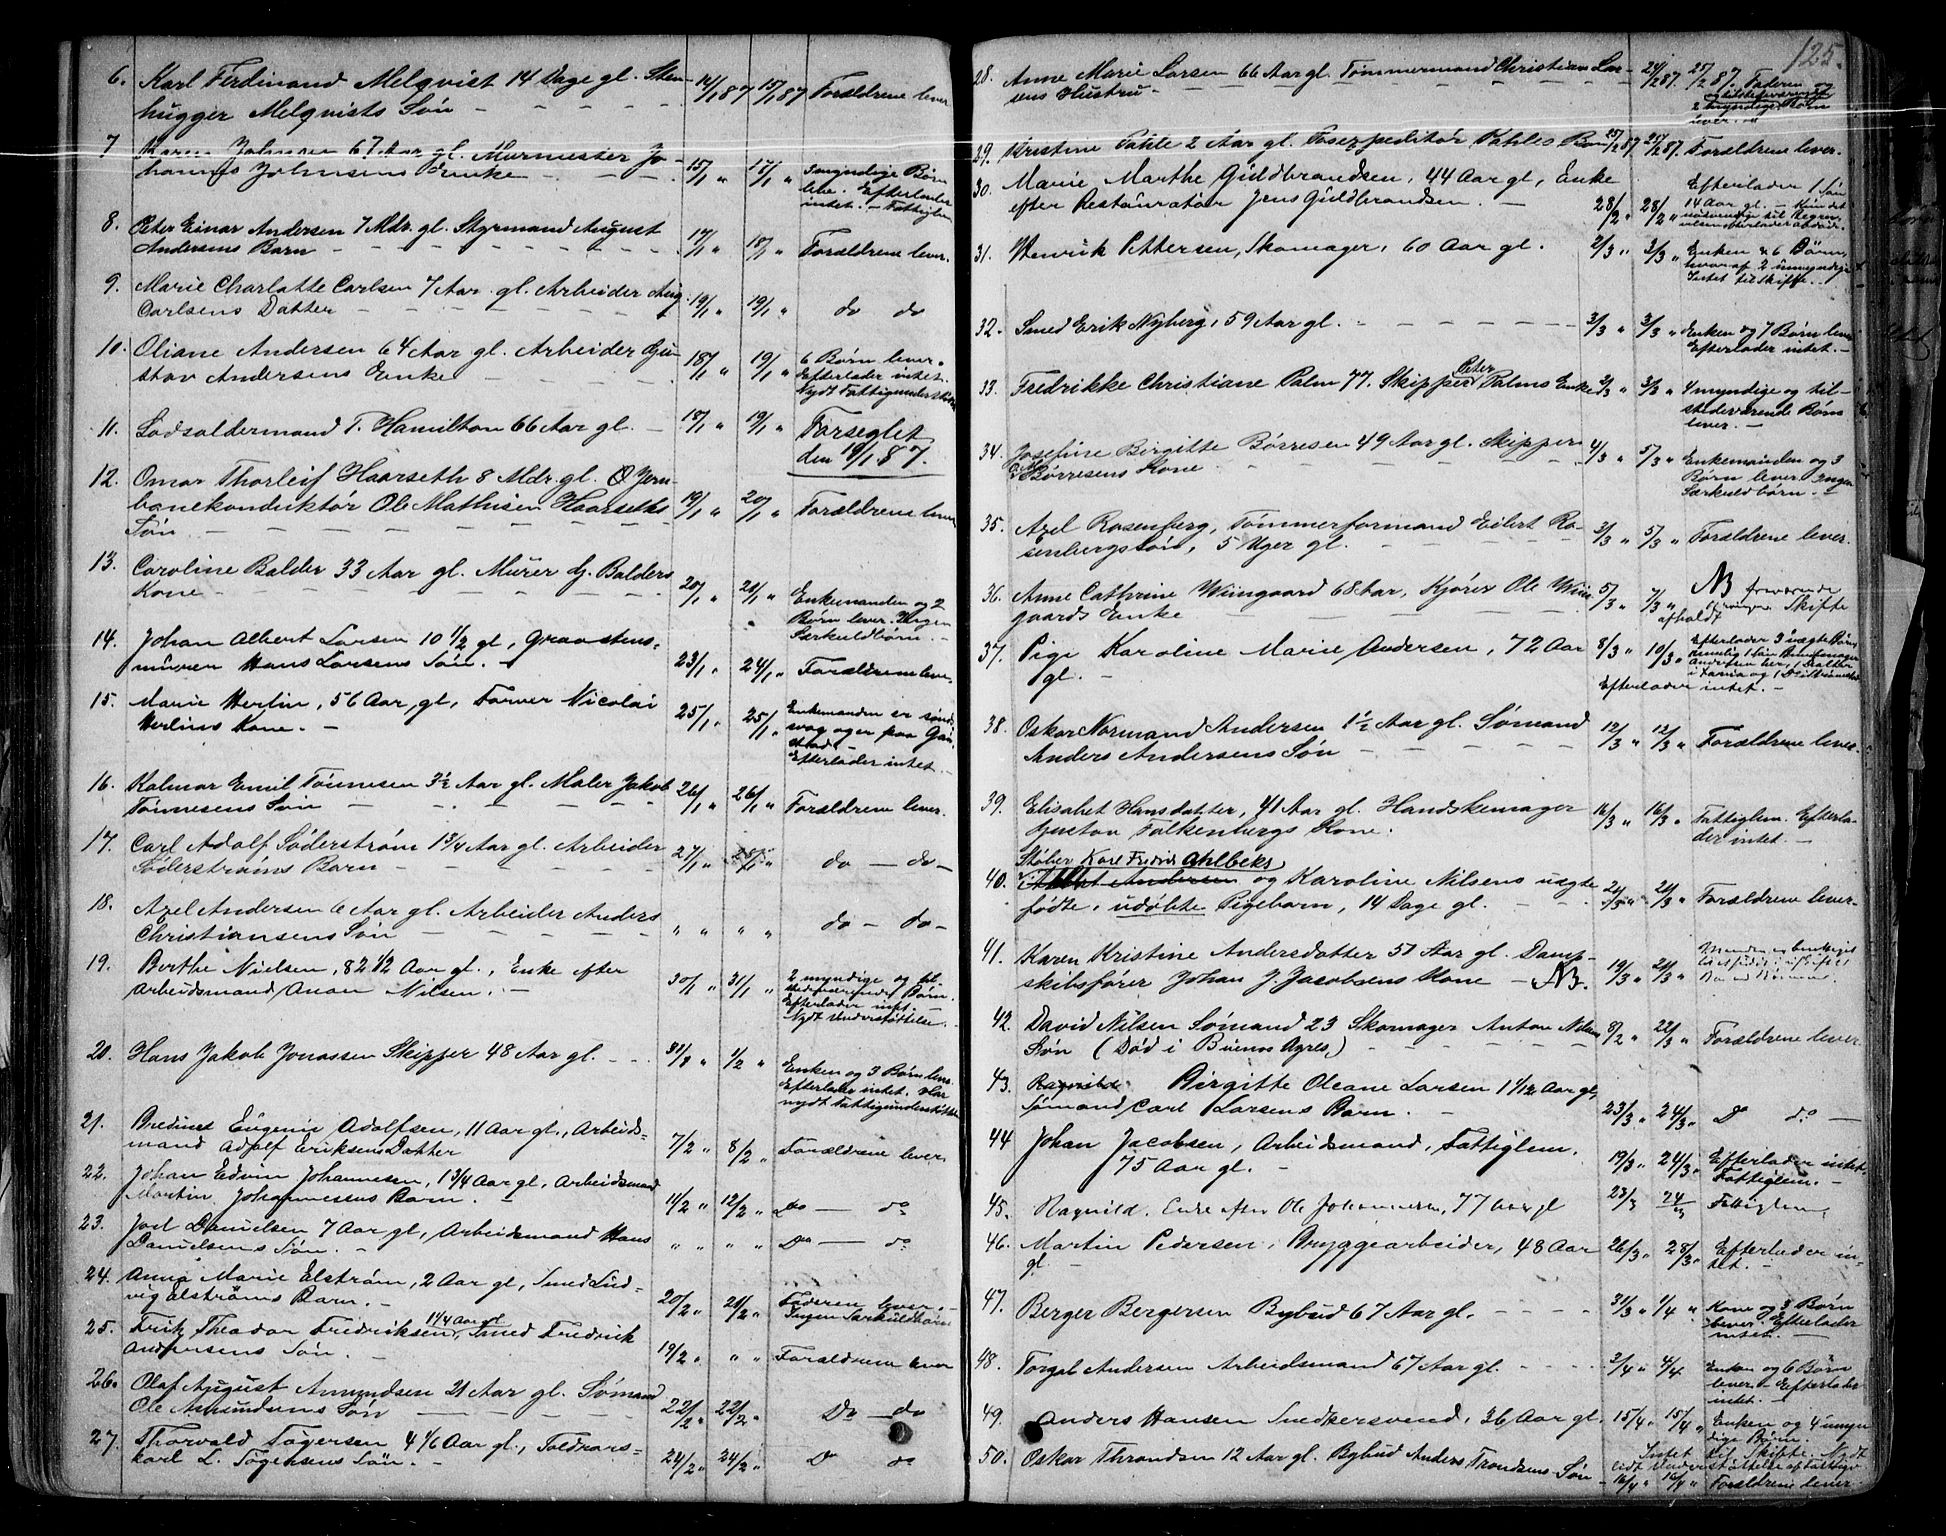 6. Karl Ferdinand Melqvist 14 Dage gl. Sten- 14/1 87 15/1 87 Forældrene lever
hugger Melqvists Søn
7 Karen Johnsen 67 Aar gl. Murmester Jo- 15/1 " 17/1 " myndige Børn
hannes Johnsens Enke lever. Efterlader
intet. - Fattiglem
8. Peter Einar Andersen 7 Mdr. gl. Styrmand August 17/1 " 18/1 "
Andersens Barn Forældrene lever.
9. Marie Charlotte Carlsen 7 Aar gl. Arbeider Aug. 19/1 " 19/1 " do do
Carlsens Datter
10. Oliane Andersen 64 Aar gl. Arbeider Gu- 18/1 " 19/1 " 6 Børn lever.
stav Andersens Enke Efterlader intet.
Nydt Fattigunderstøt
11. Lodsoldermand T. Hamilton 66 Aar gl. 18/1 " 19/1 " Forseglet
den 19/1 87.
12. Omar Thorleif Haarseth 8 Mdr. gl. Jern-
banekonduktør Ole Mathisen Haarseths 19/1 " 20/1 " Forældrene lever
Søn
13. Caroline Balder 33 Aar gl. Murer Balders 20/1 " 21/1 " Enkemanden og 2
Kone Børn lever. Ingen
Særkuldbørn.
14. Johan Albert Larsen 10 1/2 gl, Graastens-
murer Hans Larsens Søn. - 23/1 " 24/1 " Forældrene lever
15. Marie Herlin, 56 Aar, gl, Farver Nicolai 25/1 " 25/1 " Enkemanden er sinds
Herlins Kone. - svag og er paa Gau
stad. -
Efterlader intet. -
16. Kalmar Emil Tønnesen 3 1/2 Aar gl. Maler Jakob 26/1 " 26/1 " Forældrene lever.
Tønnesens Søn
17. Carl Adolf Søderstrøm 1 3/4 Aar gl. Arbeider 27/1 " 28/1 " do - do -
Søderstrøms Barn
18. Axel Andersen 6 Aar gl. Arbeider Anders " " " " do - do -
Christiansens Søn
19. Berthe Nielsen, 82 1/2 Aar gl., Enke efter 30/1 " 31/1 " 2 myndige og til-
Arbeidsmand Nilsen. - stedeværende Børn.
Efterlader intet.
Nydt Understøttelse. -
20. Hans Jakob Jonassen Skipper 48 Aar gl. " 1/2 " Enken og 3 Børn lever.
Efterlader intet. Har
nydt Fattigunderstøttelse
21. Eugenie Adolfsen, 11 Aar gl., Arbeids-
mand Adolf Eriksens Datter 7/2 " 8/2 " Forældrene lever
22. Johan Edvin Johannesen, 1 3/4 Aar gl, Arbeidsmand
Martin Johannessens Barn. - 11/2 " 12/2 " Do - do
23. Danielsen 7 Aar gl, Arbeidsmand Hans
Danielsens Søn. - " " " " Do - do
24. Anna Marie Elstrøm, 2 Aar gl, Smed Lud-
vig Elstrøms Barn. - 20/2 " 21/2 " Faderen lever. -
Ingen Særkuldbørn
25. Fritz Theodor Fredriksen, 1 1/4 Aar gl Smed Fredrik
Andersens Søn. - 19/2 " " " Forældrene lever
26. Olaf August Amundsen 21 Aar gl. Sømand 22/2 " 22/2 " Do - do
Ole Amundsens Søn
27. Thorvald Tøgersen 4 1/6 Aar gl., Toldkars-
karl L. Tøgersens Søn. - 24/2 " 24/2 " D do
125.
28. Anne Marie Larsen 66 Aar gl. Tømmermand Christian Lar- 24/2 87 25/2 87. Faderen og
sens Hustru. - 2 myndige Børn
lever.
29. Kristine Pahle 2 Aar gl. Pahles Barn 25/2 87 25/2 87. Forældrene lever.
30. Marie Marthe Guldbrandsen, 44 Aar gl, Enke Efterlader 1 Søn
efter Restauratør Jens Guldbrandsen. - 28/2 " 28/2 " 14 Aar gl.
31. Henrik Pettersen, Skomager, 60 Aar gl. 2/3 " 3/3 " Enken & 6 Børn,
hvoraf 2 umyndige
Intet til Skifte. -
32. Smed Erik Nyberg, 59 Aar gl. 3/3 " 3/3 " Enken og 7 Børn lever
Efterlader intet. -
33. Fredrikke Christiane Palm 77. Skipper Peter Palms Enke 2/3 " 3/3 " 4 myndige og til-
stedeværende Børn
lever. -
34. Josefine Birgitte Børresen 49 Aar gl. Skipper 4/3 " 5/3 " Enkemanden og 3
Børresens Kone Børn lever Ingen
Særkuldbørn. -
35. Axel Rosenberg, Tømmerformand Eilert Ro- 3/3 " 5/3 " Forældrene lever.
senbergs Søn, 5 Uger gl.
36. Anne Cathrine Wiingaard 68 Aar, Kjører Ole Wiin 5/3 " 7/3 " NB
gaards Enke Skifte
afholdt
37. Pige Karoline Marie Andersen, 72 Aar 8/3 " 10/3 " Efterlader 3 uægte Børn,
gl. - Efterlader intet. -
38. Oskar Normand Andersen 1 1/2 Aar gl. Sømand 12/3 " 12/3 " Forældrene lever.
Anders Andersens Søn
39. Elisabet Hansdatter, 41 Aar gl. Handskemager 16/3 " 16/3 " Fattiglem. Efterla-
Gustav Falkenbergs Kone. der intet. -
Støber Karl Fredrik Ahlbeks
40. Albert Andersen og Karoline Nilsens uægte 20/3 " 21/3 " Forældrene lever.
fødte, udøbte Pigebarn, 14 Dage gl.
41. Karen Kristine Andersdatter 51 Aar gl. Damp-
skibsfører Johan J. Jacobsens Kone - NB. 19/3 " 21/3 "
42. David Nilsen Sømand 23 Skomager Anton Nilsens 8/2 " 22/3 " Forældrene lever.
Søn (Død i Buenos Ayres,)
43. Ragnhild Birgitte Oleane Larsen 1 1/12 Aar gl,
Sømand Carl Larsens Barn. - 23/3 " 24/3 " Do do -
44 Johan Jacobsen, Arbeidsmand, Fattiglem,
75 Aar gl. - 19/3 " 24/3 " Efterlader intet.
Fattiglem. -
45. Ragnild, Enke efter Ole Johannesen, 77 Aar gl 23/3 24/3 Fattiglem,
46. Martin Pedersen, Bryggearbeider, 48 Aar 26/3 " 28/3 " Efterlader in-
gl. tet. -
47. Berger Bergersen Bybud 67 Aar gl. 31/3 " 1/4 " Kone og 3 Børn
lever. Efterlader
intet. -
48. Torgel Andersen Arbeidsmand 67 Aar gl. 2/4 " 4/4 Enken og 6 Børn
lever. - Efterlader
intet. -
49. Anders Hansen Snedkersvend, 36 Aar gl. 15/4 " 15/4 " Enken og 4 umyn
dige Børn.
Intet til Skifte. Nydt
lidt Understøttelse af Fattigv.
50. Oskar Throndsen 12 Aar gl. Bybud Anders Trondsens Søn - 16/4 " 16/4 " Forældrene lever